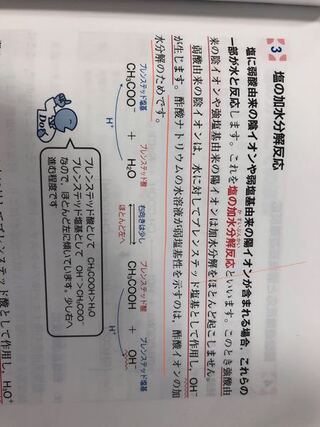 3 塩の加水分解反応
塩に弱酸由来の陰イオンや弱塩基由来の陽イオンが含まれる場合，これらの
一部が水と反応します。これを塩の加水分解反応といいます。このとき強酸由
来の陰イオンや強塩基由来の陽イオンは加水分解をほとんど起こしません。
弱酸由来の陰イオンは，水に対してブレンステッド塩基として作用し，OH⁻
が生じます。酢酸ナトリウムの水溶液が弱塩基性を示すのは，酢酸イオンの加
水分解のためです。
ブレンステッド塩基 ブレンステッド酸 右向きは少し ブレンステッド酸 ブレンステッド塩基
CH₃COO⁻ + H₂O ⇄ CH₃COOH + OH⁻
ほとんど左へ
H⁺ H⁺
ブレンステッド酸として CH₃COOH>H₂O
ブレンステッド塩基として OH⁻>CH₃COO⁻
なので，ほとんど左に傾いています。少し右へ
進む程度です
ブレンステッド酸として作用し，H₃O⁺